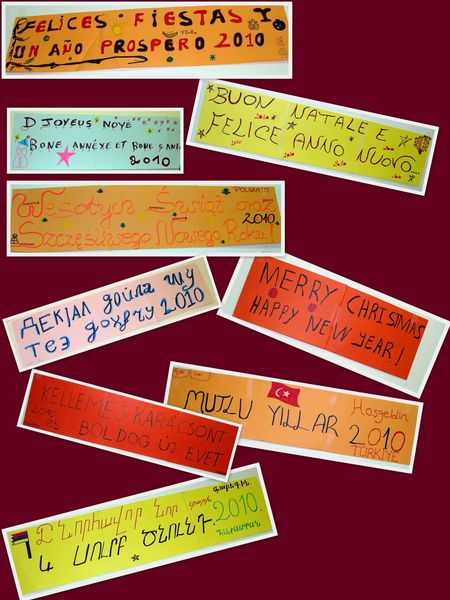 FELICES FIESTAS Y
UN AÑO PROSPERO 2010
BUON NATALE E
FELICE ANNO NUOVO...
D JOYEUS NOYÉ
BONE ANNÉYE ET BONE SANTÉ
2010
POLSKA!!!
Wesołych Świąt oraz
2010
Szczęśliwego Nowego Roku!
MERRY CHRISTMAS
HAPPY NEW YEAR!
2010
MUTLU YILLAR 2010
Hoşgeldin
TÜRKİYE
KELLEMES KARÁCSONT
2010
BOLDOG ÚJ ÉVET
Շնորհավոր Նոր տարի
և ՍՈՒՐԲ ԾՆՈՒՆԴ.
2010.
Հայաստան